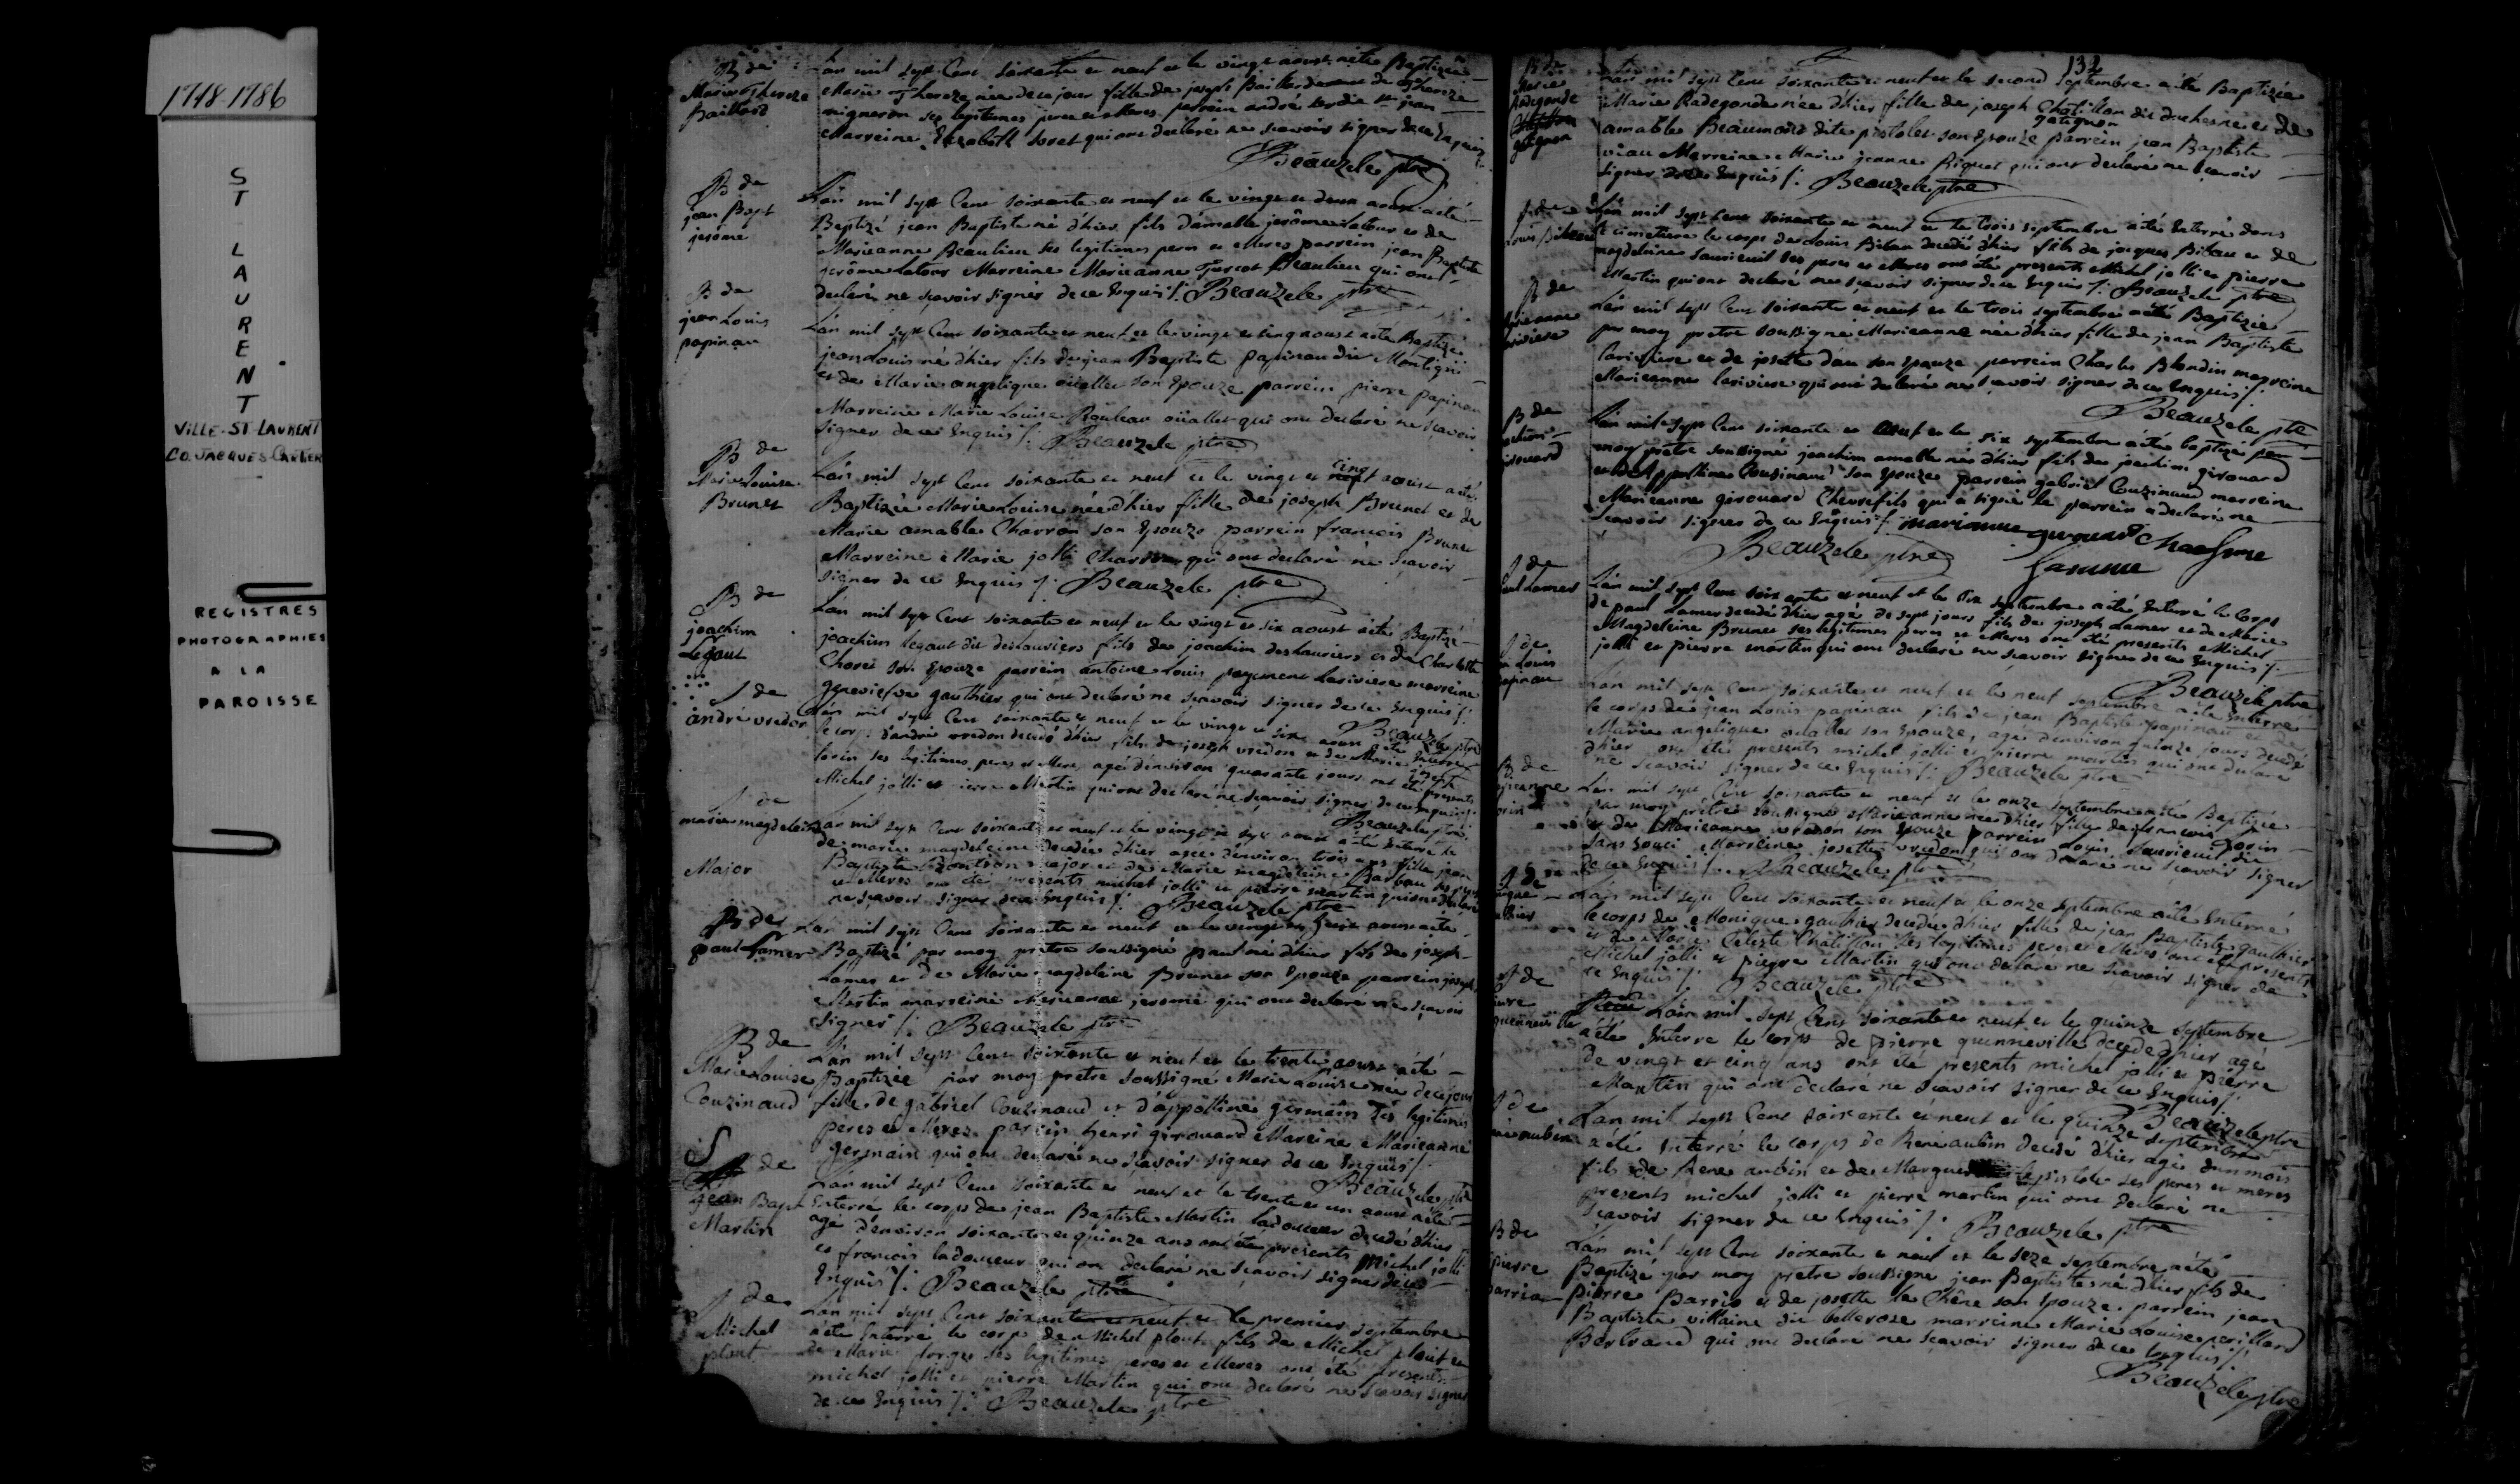 1718-1786
ST LAURENT
VILLE-ST-LAURENT
CO. JACQUES-CARTIER
REGISTRES
PHOTOGRAPHIES
A LA
PAROISSE
B de
Marie Thereze
Baillard
L'an mil sept Cent soixante et neuf et le vingt aoust a été Baptizée
Marie Thereze née de ce jour fille de joseph Baillard et de Thereze
migneron ses legitimes pere et meres parrein andré
Marreine Elizabeth qui ont declaré ne scavoir signer de ce Enquis
Beauzele ptre
B de
jean Bapt
jerôme
L'an mil sept Cent soixante et neuf et le vingt et deux aoust a été
Baptizé jean Baptiste né d'hier fils d'amable jerôme latour et de
Marieanne Beaulieu ses legitimes peres et Meres parrein jean Baptiste
jerôme latour Marreine Marieanne Turcot Beaulieu qui ont
declaré ne scavoir signer de ce Enquis /: Beauzele ptre
B de
jean Louis
papinau
L'an mil sept Cent soixante et neuf et le vingt et cinq aoust a été Baptizé
jean Louis né d'hier fils de jean Baptiste papinau dit Montigni
et de Marie angelique ouellet son Epouze parrein pierre papinau
Marreine Marie Louise Rouleau ouallet qui ont declaré ne scavoir
signer de ce Enquis /: Beauzele ptre
B de
Marie Louise
Brunet
L'an mil sept Cent soixante et neuf et le vingt et cinq aoust a été
Baptizée Marie Louise née d'hier fille de joseph Brunet et de
Marie amable Charron son Epouze parrein francois Brunet
Marreine Marie jolli Charron qui ont declaré ne scavoir
signer de ce Enquis /: Beauzele ptre
B de
joachim
Legaut
L'an mil sept Cent soixante et neuf et le vingt et six aoust a été Baptizé
joachim legaut dit deslauriers fils de joachim deslauriers et de Charlotte
Choret son Epouze parrein antoine Louis payement lariviere marreine
genevieve gauthier qui ont declaré ne scavoir signer de ce Enquis /:
Beauzele ptre
S de
andré vredon
L'an mil sept Cent soixante et neuf et le vingt et six aoust a été Enterré
le corps d'andré vredon decedé d'hier fils de joseph vredon et de Marie
lorin ses legitimes peres et Meres agé d'environ quarante jours ont été presents
Michel jolli et pierre Martin qui ont declaré ne scavoir signer de ce Enquis
Beauzele ptre
S de
marie magdeleine
Major
L'an mil sept Cent soixante et neuf et le vingt et sept aoust a été Enterré le
de marie magdeleine decedée d'hier agée d'environ trois ans fille jean
Baptiste major et de Marie magdeleine Barbau ses peres
et Meres ont été presents michel jolli et pierre martin qui ont declaré
ne scavoir signer de ce Enquis /: Beauzele ptre
B de
paul Lamer
L'an mil sept Cent soixante et neuf et le vingt et aoust a été
Baptizé par moy pretre soussigné paul né d'hier fils de joseph
Lamer et de Marie magdeleine Brunet son Epouze parrein joseph
Martin marreine Marieanne jeromé qui ont declaré ne scavoir
signer /: Beauzele ptre
B de
Marie Louise
Couzinaud
L'an mil sept Cent soixante et neuf et le trente aoust a été
Baptizée par moy pretre soussigné Marie Louise née de ce jour
fille de gabriel Couzinaud et d'appolline germain ses legitimes
peres et Meres parrein henri girouard Mareine Marieanne
germain qui ont declaré ne scavoir signer de ce Enquis /:
Beauzele ptre
S de
jean Bapt
Martin
L'an mil sept Cent soixante et neuf et le trente et un aoust a été
Enterré le corps de jean Baptiste Martin ladouceur decedé d'hier
agé d'environ soixante et quinze ans ont été presents Michel jolli
et francois ladouceur qui ont declaré ne scavoir signer de ce
Enquis /: Beauzele ptre
S de
Michel
plout
L'an mil sept Cent soixante et neuf et le premier septembre
a été Enterré le corps de Michel plout fils de Michel plout et
de Marie forget ses legitimes peres et Meres ont été presents
michel jolli et pierre Martin qui ont declaré ne scavoir signer
de ce Enquis /: Beauzele ptre
132
B de
Marie
Radegonde
gatignon
L'an mil sept Cent soixante et neuf et le second septembre a été Baptizée
Marie Radegonde née d'hier fille de joseph Chatillon dit duchesne et de
gatignon
amable Beaumont dite pistolet son Epouze parrein jean Baptiste
viau Marreine Marie jeanne Riquet qui ont declaré ne scavoir
signer de ce Enquis /: Beauzele ptre
S de
Louis Bileau
L'an mil sept Cent soixante et neuf et le trois septembre a été Enterré dans
le cimetiere le corps de Louis Bilau decedé d'hier fils de jacques Bilau et de
magdeleine ses peres et Meres ont été presents Michel jolli et pierre
Martin qui ont declaré ne scavoir signer de ce Enquis /: Beauzele ptre
B de
Marieanne
lariviere
L'an mil sept Cent soixante et neuf et le trois septembre a été Baptizée
par moy pretre soussigné Marieanne née d'hier fille de jean Baptiste
lariviere et de josette son Epouze parrein Charles Blondin marreine
Marieanne lariviere qui ont declaré ne scavoir signer de ce Enquis /:
Beauzele ptre
B de
joachim
girouard
L'an mil sept Cent soixante et neuf et le six septembre a été baptizé par
moy pretre soussigné joachim amable né d'hier fils de joachim girouard
et d'appolline Couzinaud son Epouze parrein gabriel Couzinaud marreine
Marieanne girouard Chevrefils qui a signé le parrein a declaré ne
scavoir signer de ce Enquis /: marianne girouard
Beauzele ptre
S de
paul Lamer
L'an mil sept Cent soixante et neuf et le six septembre a été Enterré le Corps
de paul Lamer decedé d'hier agé de sept jours fils de joseph Lamer et de Marie
Magdeleine Brunet ses legitimes peres et Meres ont été presents Michel
jolli et pierre martin qui ont declaré ne scavoir signer de ce Enquis /:
Beauzele ptre
S de
jean Louis
papinau
L'an mil sept Cent soixante et neuf et le neuf septembre a été Enterré
le corps de jean Louis papinau fils de jean Baptiste papinau et de
Marie angelique ouallet son Epouze, agé d'environ quinze jours decedé
d'hier ont été presents michel jolli et pierre martin qui ont declaré
ne scavoir signer de ce Enquis /: Beauzele ptre
B de
Marieanne
L'an mil sept Cent soixante et neuf et le onze septembre a été Baptizée
par moy prêtre soussigné Marieanne née d'hier fille de francois
et de Marieanne vredon son Epouze parrein Louis dit
sans souci Marreine josette vredon qui ont declaré ne scavoir signer
de ce Enquis /: Beauzele ptre
S de
monique
gauthier
L'an mil sept Cent soixante et neuf et le onze septembre a été Enterré
le corps de Monique gauthier decedée d'hier fille de jean Baptiste gauthier
et de Marie Celeste Chatillon ses legitimes peres et Meres ont été presents
Michel jolli et pierre Martin qui ont declaré ne scavoir signer de
ce Enquis /: Beauzele ptre
S de
pierre
quenneville
L'an mil sept Cent soixante et neuf et le quinze septembre
a été Enterré le corps de pierre quenneville decedé d'hier agé
de vingt et cinq ans ont été presents michel jolli et pierre
Martin qui ont declaré ne scavoir signer de ce Enquis /:
Beauzele ptre
S de
René aubin
L'an mil sept Cent soixante et neuf et le quinze septembre
a été Enterré le corps de René aubin decedé d'hier agé d'un mois
fils de René aubin et de pistolet ses peres et meres
presents michel jolli et pierre martin qui ont declaré ne
scavoir signer de ce Enquis /: Beauzele ptre
B de
pierre
L'an mil sept Cent soixante et neuf et le seze septembre a été
Baptizé par moy pretre soussigné jean Baptiste né d'hier fils de
pierre Barrio et de josette le Chêne son Epouze parrein jean
Baptiste villaine dit bellerose marreine Marie Louise perillard
Bertrand qui ont declaré ne scavoir signer de ce Enquis /:
Beauzele ptre